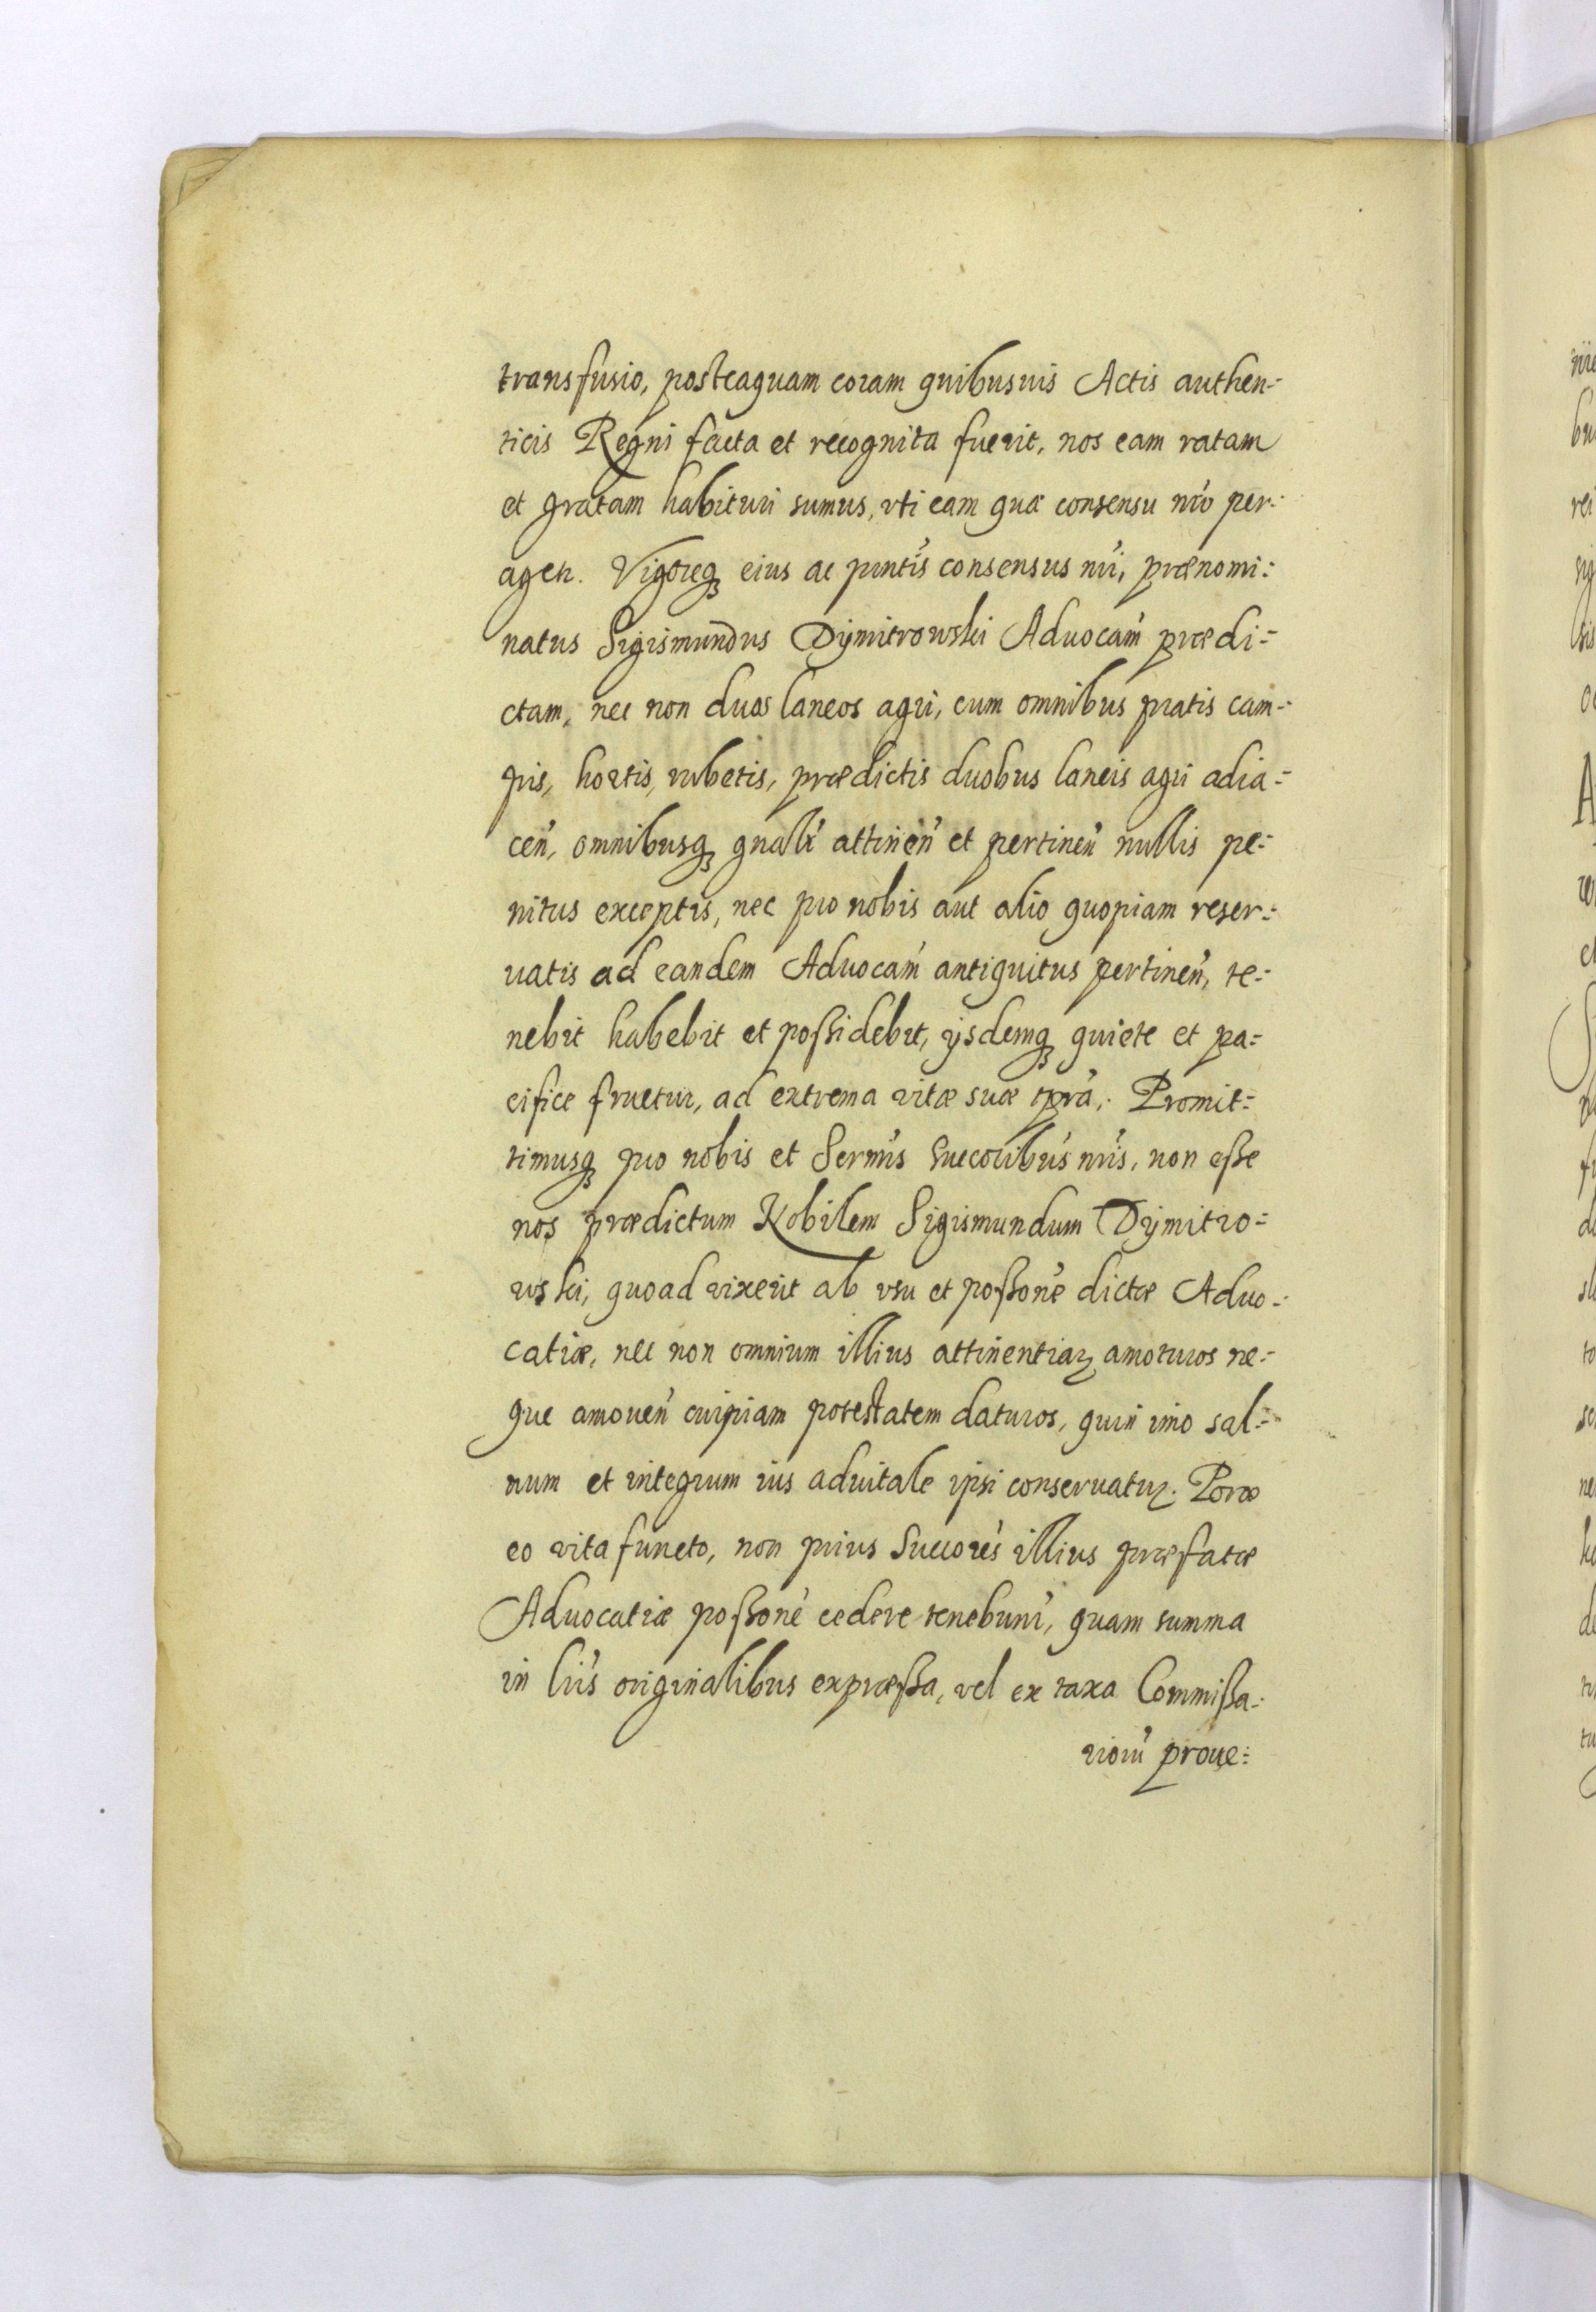 transfusio, posteaquam coram quibusuis Actis authen-
ticis Regni facta et recognita fuerit, nos eam ratam
et gratam habituri sumus, vti eam quæ consensu nr̃o per-
ageṫ. Vigoreq₃ eius ac pñtis consensus nr̃i, prænomi-
natus Sigismundus Dÿmitrowski Aduocam̃ prædi-
ctam, nec non duos laneos agri, cum omnibus pratis cam-
pis, hortis, rubetis, prædictis duobus laneis agri adia-
ceñ, omnibusq₃ gnalr̃ attineñ et pertineñ nullis pe-
nitus exceptis, nec pro nobis aut alio quopiam reser-
uatis ad eandem Aduocam̃ antiquitus pertineñ, te-
nebit habebit et poßidebit, ijsdemq₃ quiete et pa-
cifice fruetur, ad extrema vitæ suæ tp̃ra. Promit-
timusq₃ pro nobis et Serm̃is Succorib̃us nr̃is, non eße
nos prædictum Nobilem Sigismundum Dÿmitro-
wski, quoad vixerit ab vsu et poßone̅ dictæ Aduo-
catiæ, nec non omnium illius attinentiaꝝ amoturos ne-
que amoueñ cuipiam potestatem daturos, quin imo sal-
uum et integrum ius aduitale ipsi conseruatuꝝ. Poro̅
eo vita functo, non prius Succores̃ illius præfatæ
Aduocatiæ poßone̅ cedere tenebunt̃, quam summa
in lr̃is originalibus expræßa, vel ex taxa Commißa-
rioru̅ proue-